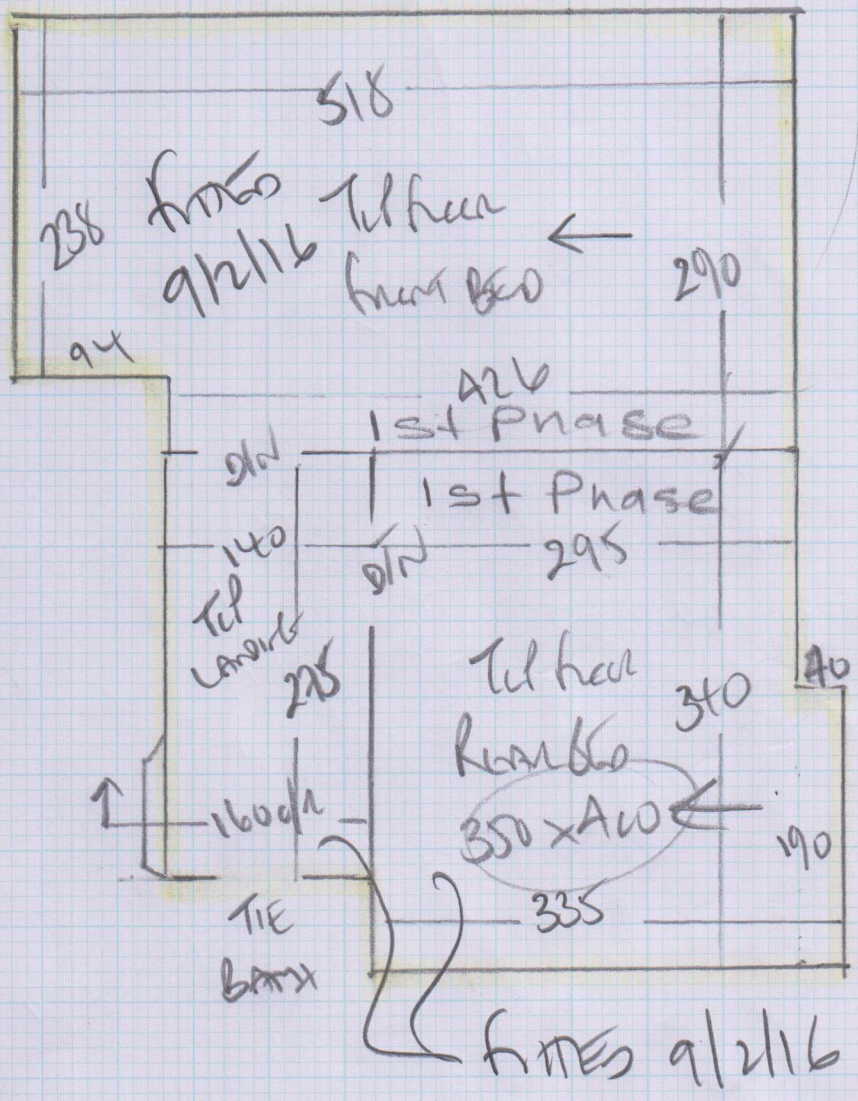 518
238
FITTED
9/2/16
Top Floor
Front BED
290
94
426
1st Phase
D/N
1st Phase
140
D/N
295
Top
LANDING
275
Top Floor
Rear BED
340
40
160 d/n
350 x 400
190
335
TIE
BATH
FITTED 9/2/16